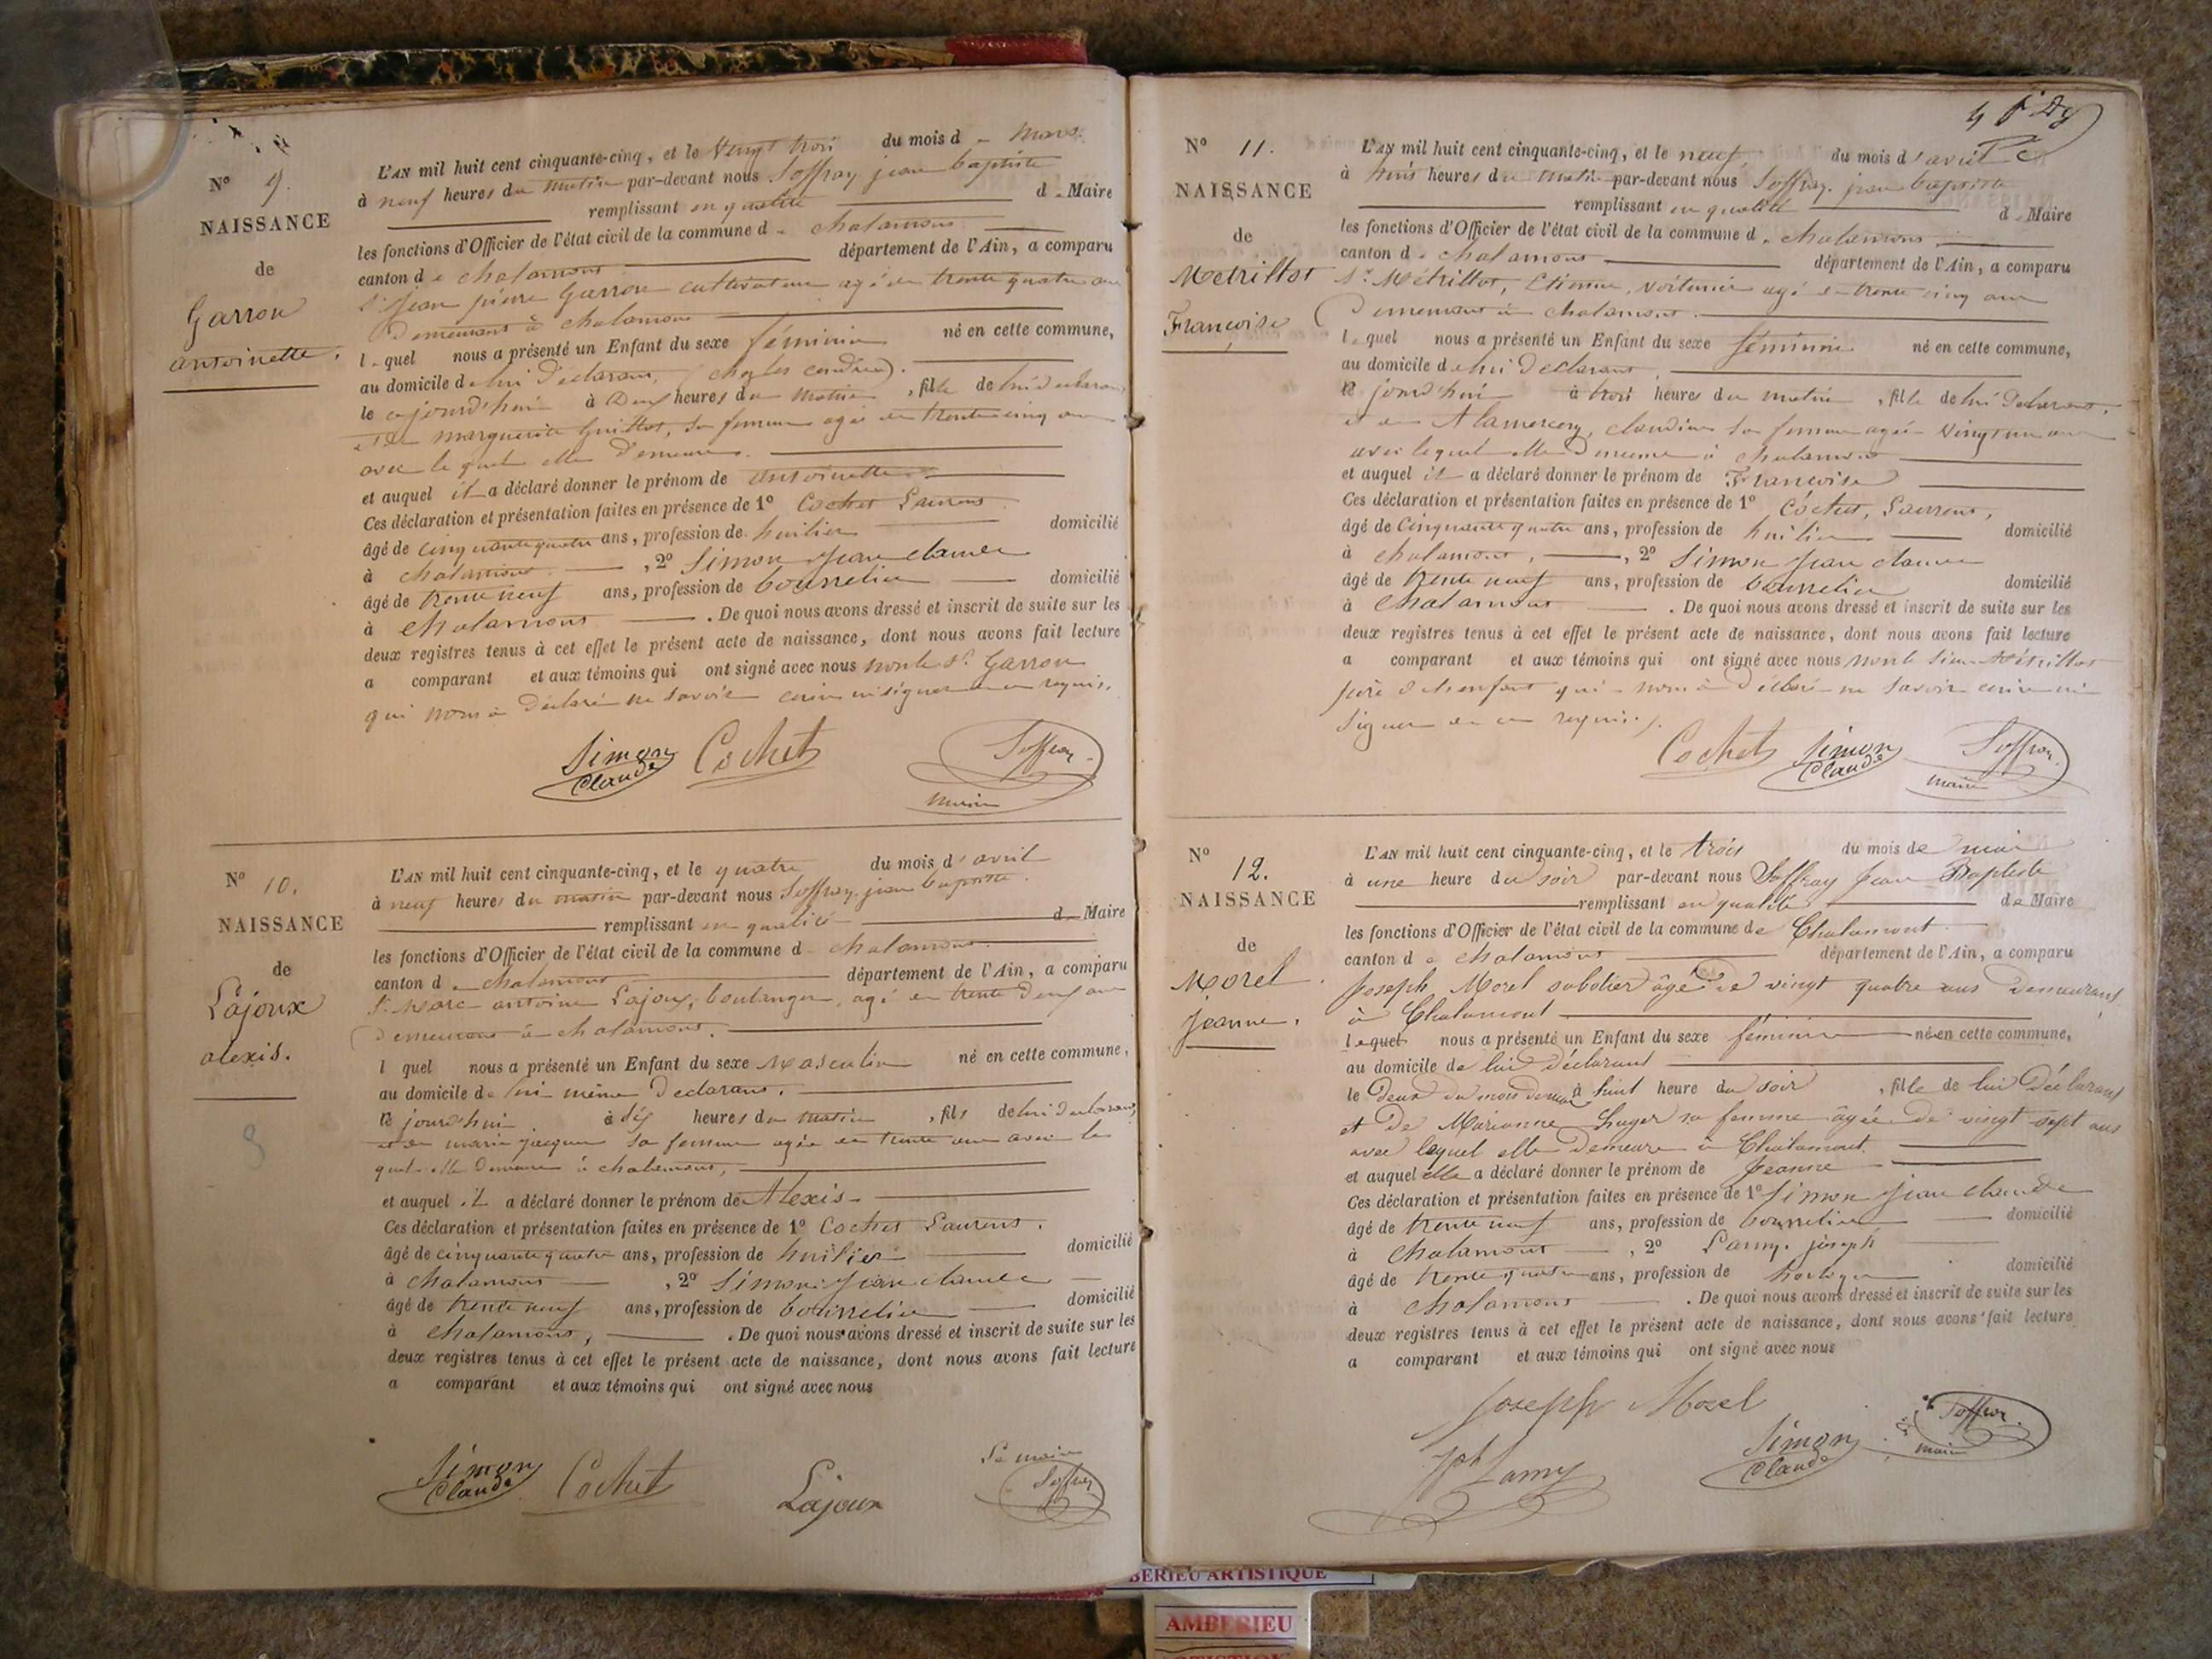 Nº 9.
NAISSANCE
de
Garron
antoinette.
L'AN mil huit cent cinquante-cinq, et le vingt trois du mois d Mars.
à neuf heures du matin par-devant nous Soffray jean baptiste
remplissant en qualité d Maire
les fonctions d'Officier de l'état civil de la commune d chalamont
canton de chalamont département de l'Ain, a comparu
Sr. jean pierre Garron cultivateur agé de trente quatre ans
Demeurant à chalamont
l quel nous a présenté un Enfant du sexe féminin né en cette commune,
au domicile de lui Déclarant,
le jourd'hui à Deux heures du matin, fille de lui declarant
et de marguerite Guillot, sa femme agée de trente cinq ans
avec le quel elle Demeure.
et auquel il a déclaré donner le prénom de antoinette
Ces déclaration et présentation faites en présence de 1º Cochet Laurent
âgé de cinquante quatre ans, profession de huilier domicilié
à chalamont, 2º Simon jean claude
âgé de trente neuf ans, profession de bourrelier domicilié
à chalamont. De quoi nous avons dressé et inscrit de suite sur les
deux registres tenus à cet effet le présent acte de naissance, dont nous avons fait lecture
a comparant et aux témoins qui ont signé avec nous non le sr. Garron
qui nous à déclaré ne savoir écrire ni signer de ce requis.
Simon Claude Cochet Soffray maire
Nº 10.
NAISSANCE
de
Lajoux
alexis.
L'AN mil huit cent cinquante-cinq, et le quatre du mois d'avril
à neuf heures du matin par-devant nous Soffray jean baptiste.
remplissant en qualité d Maire
les fonctions d'Officier de l'état civil de la commune d chalamont
canton de chalamont département de l'Ain, a comparu
Sr. Marc antoine Lajoux, boulanger, agé de trente Deux ans
Demeurant à chalamont.
l quel nous a présenté un Enfant du sexe Masculin né en cette commune,
au domicile de lui même Declarant.
le jourd'hui à six heures du matin, fils de lui declarant
et de marie jacquen sa femme agée de trente ans avec le
quel elle Demeure à chalamont,
et auquel il a déclaré donner le prénom de Alexis
Ces déclaration et présentation faites en présence de 1º Cochet Laurent.
âgé de cinquante quatre ans, profession de huilier domicilié
à chalamont, 2º Simon jean claude
âgé de trente neuf ans, profession de bourrelier domicilié
à chalamont, . De quoi nous avons dressé et inscrit de suite sur les
deux registres tenus à cet effet le présent acte de naissance, dont nous avons fait lecture
a comparant et aux témoins qui ont signé avec nous
Simon Claude Cochet Lajoux Le maire Soffray
Nº 11.
NAISSANCE
de
Metrillot
Françoise
L'AN mil huit cent cinquante-cinq, et le neuf du mois d'avril
à trois heures du matin par-devant nous Soffray jean baptiste
remplissant en qualité d Maire
les fonctions d'Officier de l'état civil de la commune d chalamont.
canton d chalamont département de l'Ain, a comparu
Sr. Métrillot, Etienne, voiturier agé de trente cinq ans
Demeurant à chalamont.
l quel nous a présenté un Enfant du sexe féminin né en cette commune,
au domicile de lui Déclarant
le jourd'hui à trois heures du matin, fille de lui Déclarant,
et de Alamercery, claudine sa femme agée vingt un ans
avec lequel elle Demeure à chalamont
et auquel il a déclaré donner le prénom de Françoise
Ces déclaration et présentation faites en présence de 1º Cochet, Laurent,
âgé de cinquante quatre ans, profession de huilier domicilié
à chalamont, 2º Simon jean claude
âgé de trente neuf ans, profession de bourrelier domicilié
à chalamont. De quoi nous avons dressé et inscrit de suite sur les
deux registres tenus à cet effet le présent acte de naissance, dont nous avons fait lecture
a comparant et aux témoins qui ont signé avec nous non le sieur Métrillot
père de l'enfant qui nous à déclaré ne savoir écrire ni
signer de ce requis.
Cochet Simon Claude Soffray maire
Nº 12.
NAISSANCE
de
Morel
Jeanne.
L'AN mil huit cent cinquante-cinq, et le trois du mois de mai
à une heure du soir par-devant nous Soffray Jean Baptiste
remplissant en qualité de Maire
les fonctions d'Officier de l'état civil de la commune de Chalamont
canton de chalamont département de l'Ain, a comparu
Joseph Morel sabotier âgé de vingt quatre ans Demeurant
à Chalamont
lequel nous a présenté un Enfant du sexe féminin né en cette commune,
au domicile de lui déclarant
le Deux du mois de mai à huit heure du soir, fille de lui Déclarant
et De Marianne sa femme âgée De vingt sept ans
avec lequel elle Demeure à Chalamont.
et auquel elle a déclaré donner le prénom de Jeanne
Ces déclaration et présentation faites en présence de 1º Simon jean claude
âgé de trente neuf ans, profession de bourrelier domicilié
à chalamont, 2º Lamy joseph
âgé de trente quatre ans, profession de horloger domicilié
à chalamont. De quoi nous avons dressé et inscrit de suite sur les
deux registres tenus à cet effet le présent acte de naissance, dont nous avons fait lecture
a comparant et aux témoins qui ont signé avec nous
Joseph Morel
Jph Lamy Simon Claude Soffray maire
BERIEU ARTISTIQUE
AMBERIEU